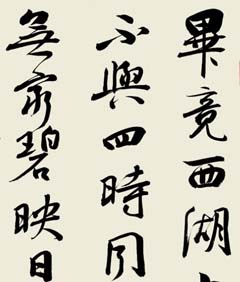 畢竟西湖
不與四時同
無窮碧映日